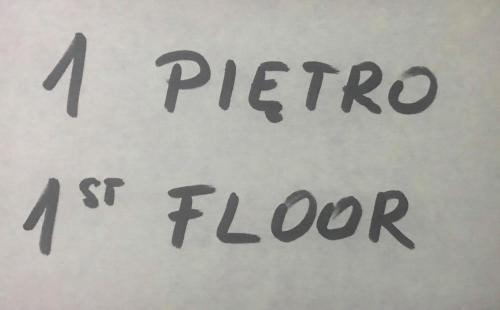 1 PIĘTRO
1ST FLOOR